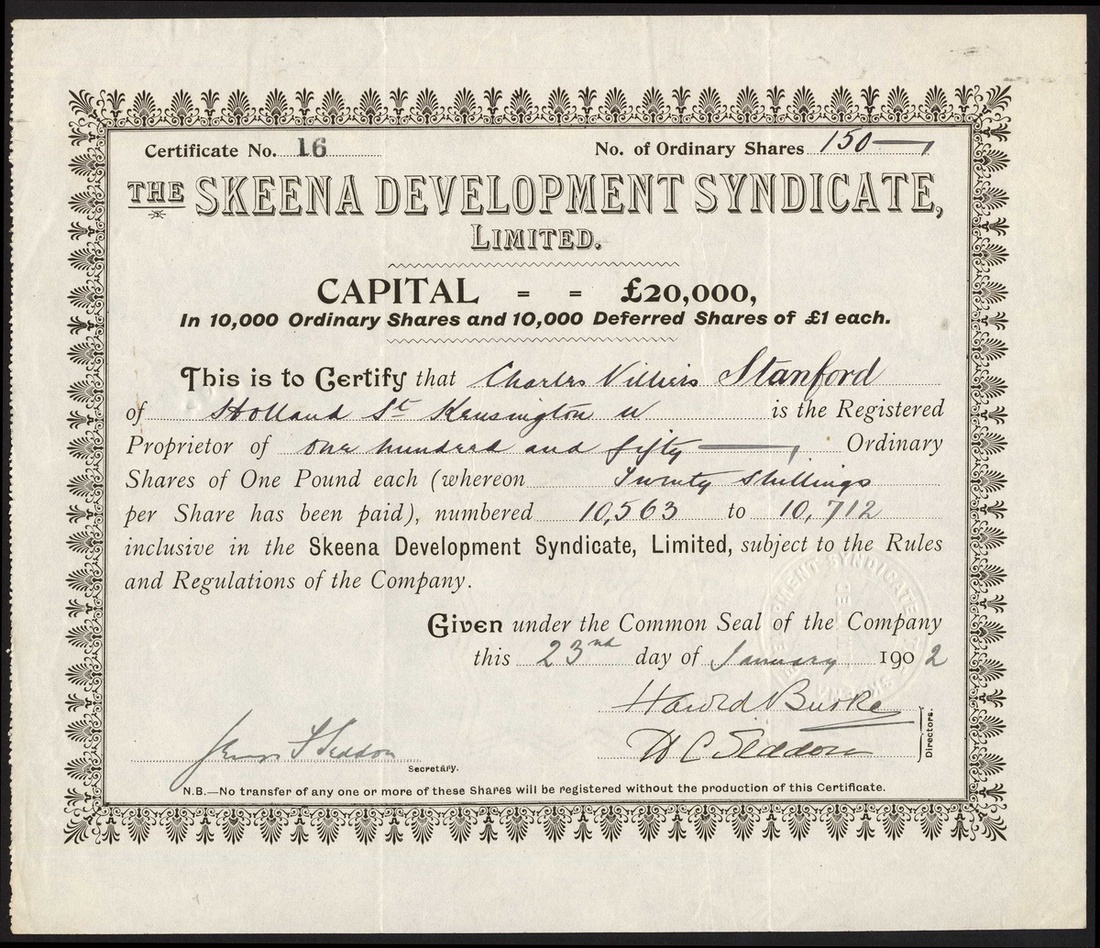 Certificate No. 16 No. of Ordinary Shares 150
THE SKEENA DEVELOPMENT SYNDICATE,
LIMITED.
CAPITAL = = £20,000,
In 10,000 Ordinary Shares and 10,000 Deferred Shares of £1 each.
This is to Certify that Charles Villiers Stanford
of Holland St Kensington W is the Registered
Proprietor of one hundred and fifty Ordinary
Shares of One Pound each (whereon Twenty Shillings
per Share has been paid), numbered 10,563 to 10,712
inclusive in the Skeena Development Syndicate, Limited, subject to the Rules
and Regulations of the Company.
Given under the Common Seal of the Company
this 23rd day of January 1902
Harold Burke
H C Seddon
Directors.
Seddon
Secretary.
N.B.—No transfer of any one or more of these Shares will be registered without the production of this Certificate.